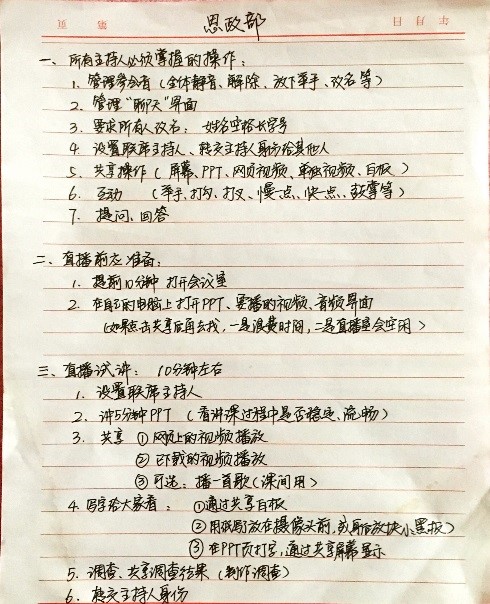 页 第 日 月 年
思政部
一、所有主持人必须掌握的操作：
1. 管理参会者（全体静音、解除、放下举手、改名等）
2. 管理“聊天”界面
3. 要求所有人改名：姓名空格长学号
4. 设置联席主持人、转交主持人身份给其他人
5. 共享操作（屏幕、PPT、网页视频、单独视频、白板）
6. 互动 （举手、打勾、打叉、慢一点、快一点、鼓掌等）
7. 提问、回答
二、直播前应准备：
1. 提前10分钟 打开会议室
2. 在自己的电脑上打开PPT、要播的视频、音频界面
（如果点击共享后再去找，一是浪费时间，二是直播室会空闲）
三、直播试讲：10分钟左右
1. 设置联席主持人
2. 讲5分钟PPT（看讲课过程中是否稳定、流畅）
3. 共享 ①网页上的视频播放
②已下载的视频播放
③可选：播一首歌（课间用）
4. 写字给大家看：①通过共享白板
②用纸写放在摄像头前，或身后放块小黑板）
③在PPT页打字，通过共享屏幕显示
5. 调查、共享调查结果（制作调查）
6. 转交主持人身份